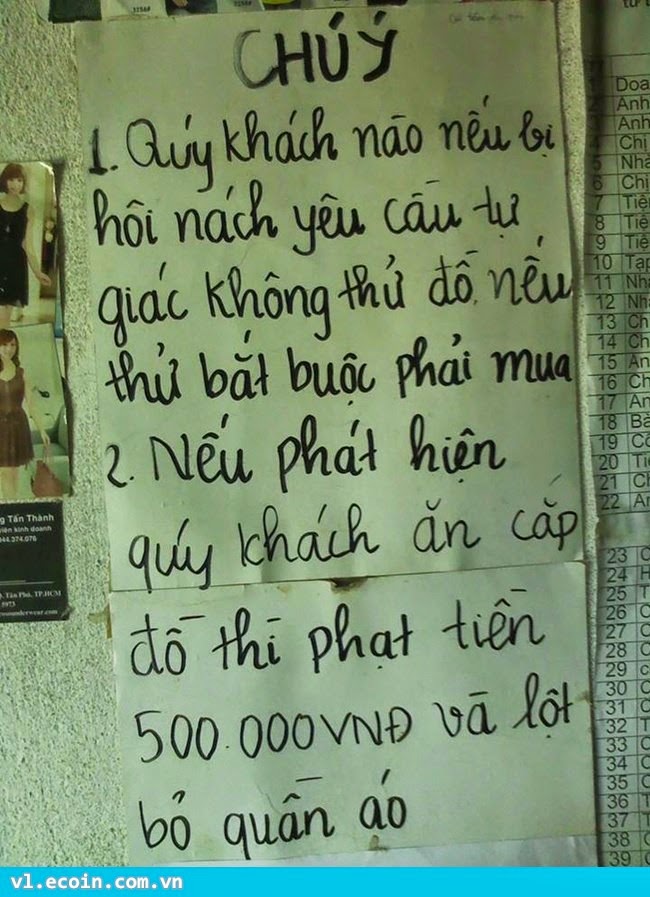 CHÚ Ý
1. Qúy khách nào nếu bị
hôi nách yêu cầu tự
giác không thử đồ, nếu
thử bắt buộc phải mua
2. Nếu phát hiện
qúy khách ăn cắp
đồ thì phạt tiền
500.000 VNĐ và lột
bỏ quần áo
g Tấn Thành
iên kinh doanh
944.274.076
. Tân Phú, TP.HCM
5973
Doa
Anh
Anh
Chị
5 Nhà
6 Chị
7 Tiê
8 Tiê
9 Tiê
10 Tạp
11 Nh
12 Nh
13 Ch
14 Ch
15 An
16 Ch
17 An
18 Bà
19 Cô
20 Ti
21 Ch
22 An
23 C
24 H
25 T
26 C
27 C
28 C
29 c
30 C
31 C
32 T
33 C
34 C
35 C
36 T
37 T
38 C
39 C
vl.ecoin.com.vn